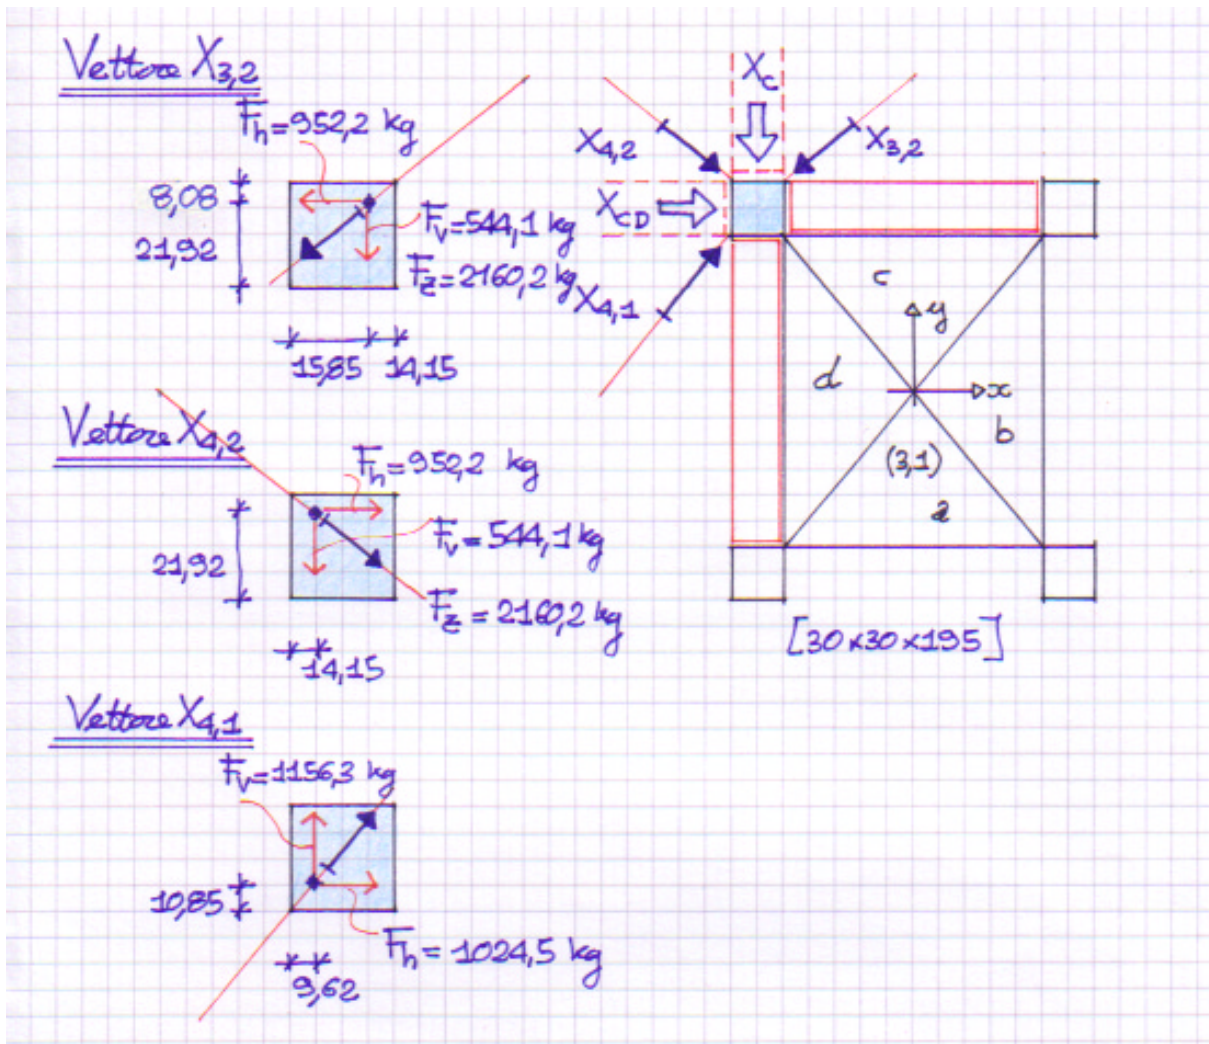 Vettore X3,2
Fh=952,2 kg
8,08
21,92
Fv=544,1 kg
Fz=2160,2 kg
15,85
14,15
Vettore X4,2
Fh=952,2 kg
21,92
Fv=544,1 kg
Fz=2160,2 kg
14,15
Vettore X4,1
Fv=1156,3 kg
10,85
Fh=1024,5 kg
9,62
Xc
X4,2
X3,2
XCD
X4,1
c
y
d
x
b
(3,1)
a
[30×30×195]